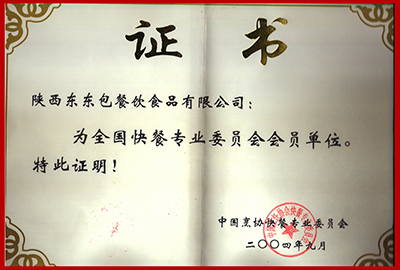 证书
陕西东东包餐饮食品有限公司：
为全国快餐专业委员会会员单位。
特此证明！
中国烹协快餐专业委员会
二〇〇四年九月